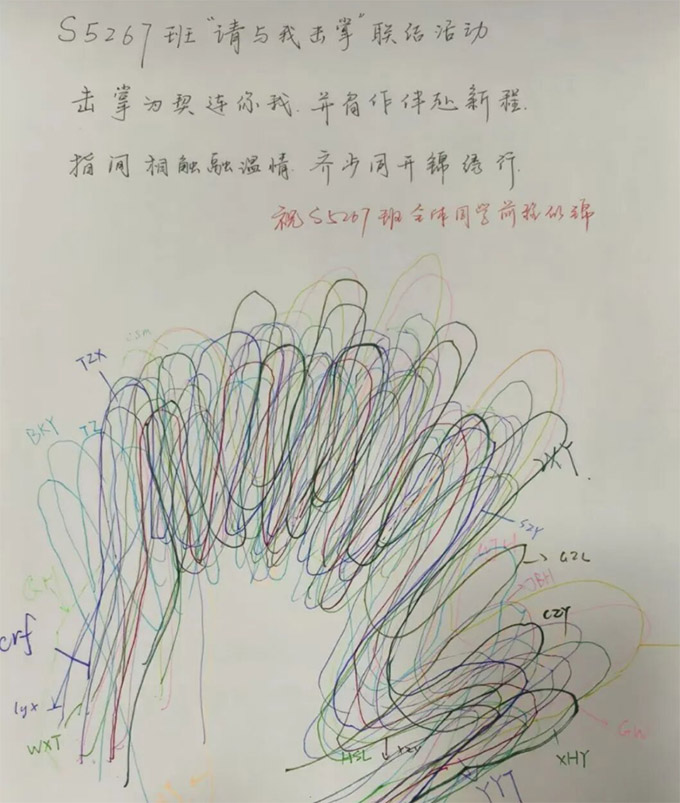 S5267班“请与我击掌”联结活动
击掌为契连你我.并肩作伴赴新程.
指间相触融温情.齐步同开锦绣行.
祝S5267班全体同学前程似锦
csm
TZX
BKY
TZ
ZXY.
SZY
GZL
JBH
CZY
crf
lyx
WXT
HSL
XZY
XHY
GW
YYT